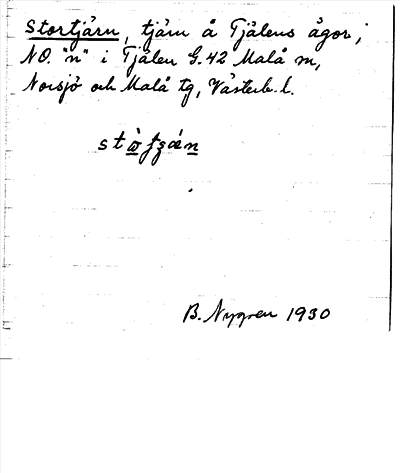 Stortjärn, tjärn å Tjålens ägor;
NO. "n" i Tjålen G.42 Malå m,
Norsjö och Malå tg, Västerb. l.
stɷ̀ʈʂæ̀n
B. Nygren 1930